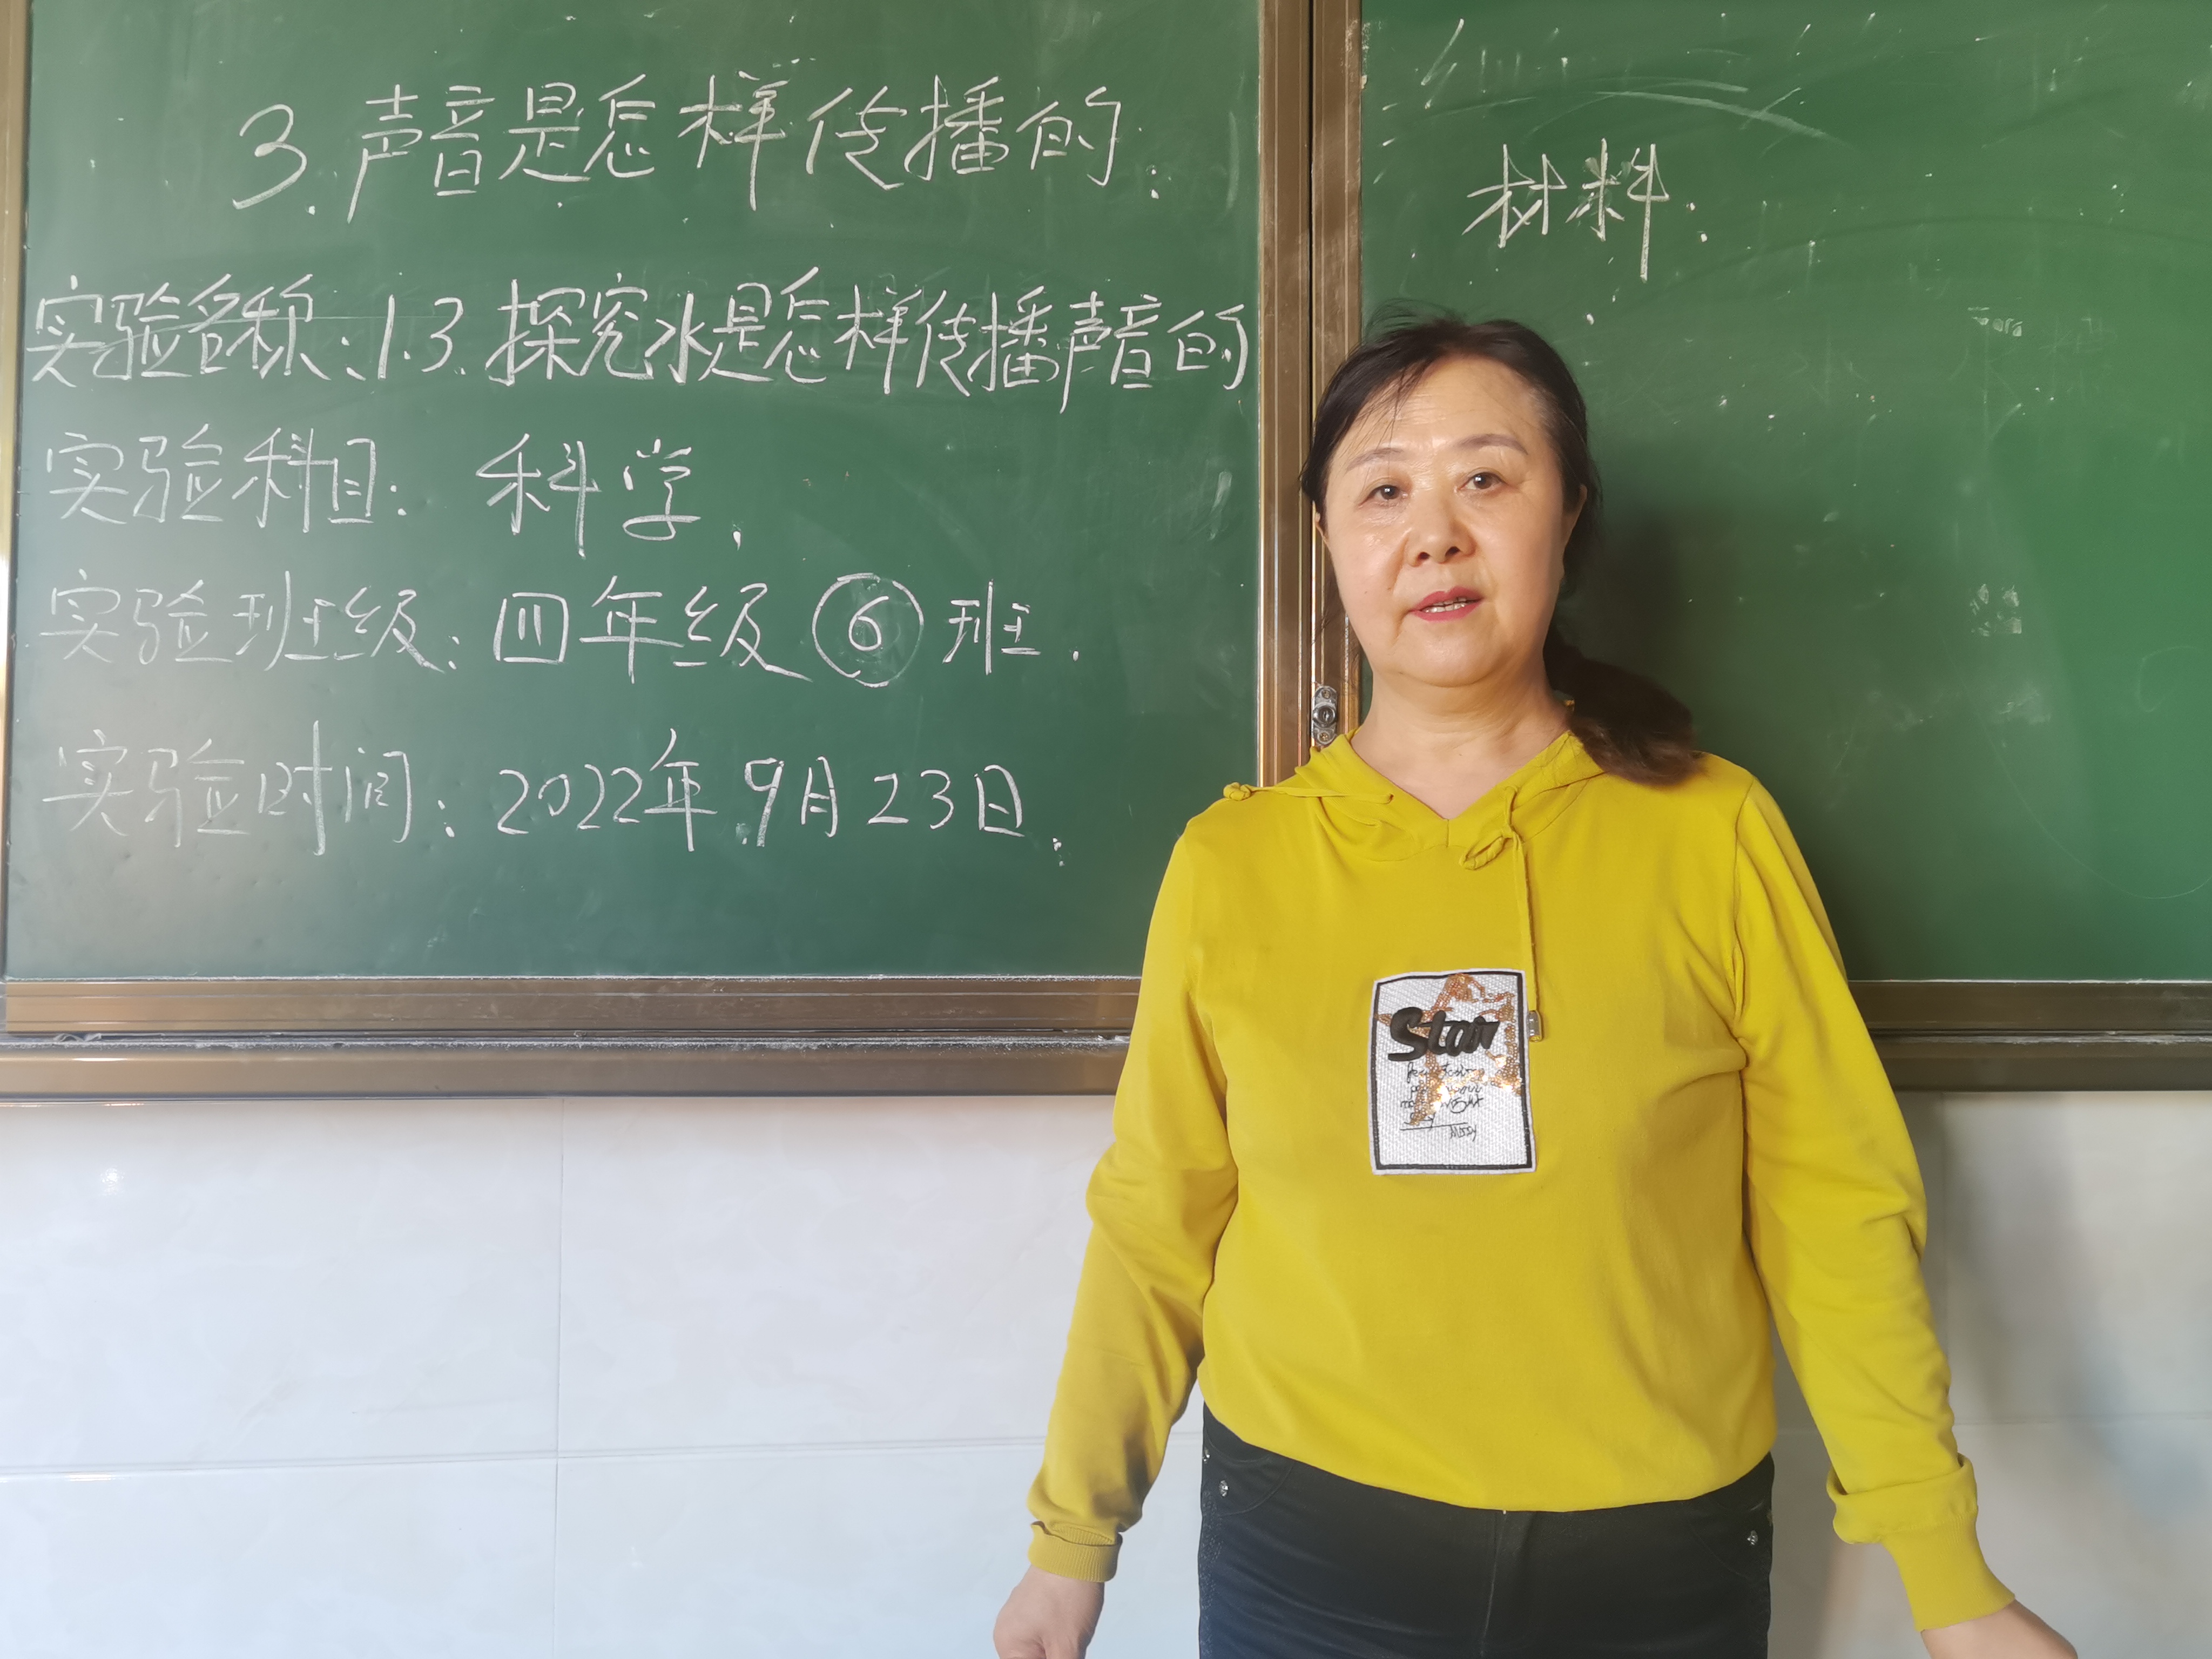 3.声音是怎样传播的:
实验名称:1.3.探究水是怎样传播声音的
实验科目: 科学.
实验班级:四年级⑥班.
实验时间:2022年.9月23日.
材料:
Star